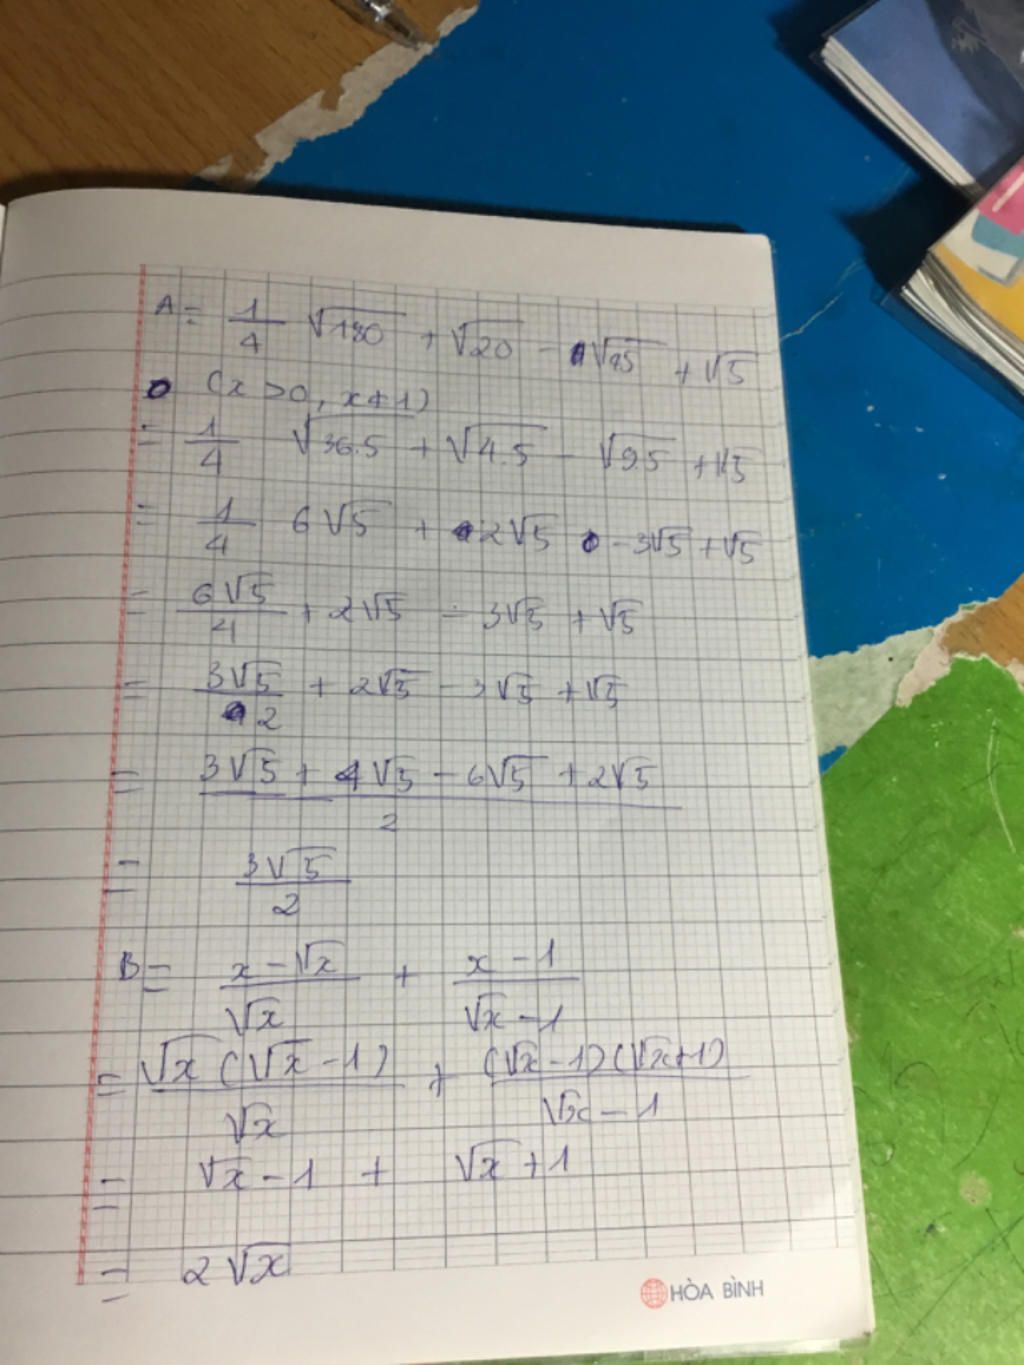 A = 1/4 √180 + √20 - √45 + √5
(x > 0, x ≠ 1)
= 1/4 √36.5 + √4.5 - √9.5 + √5
= 1/4 6√5 + 2√5 - 3√5 + √5
= 6√5/4 + 2√5 - 3√5 + √5
= 3√5/2 + 2√5 - 3√5 + √5
= (3√5 + 4√5 - 6√5 + 2√5)/2
= 3√5/2
B = (x - √x)/√x + (x - 1)/(√x - 1)
= √x (√x - 1)/√x + (√x - 1)(√x + 1)/(√x - 1)
= √x - 1 + √x + 1
= 2√x
HÒA BÌNH